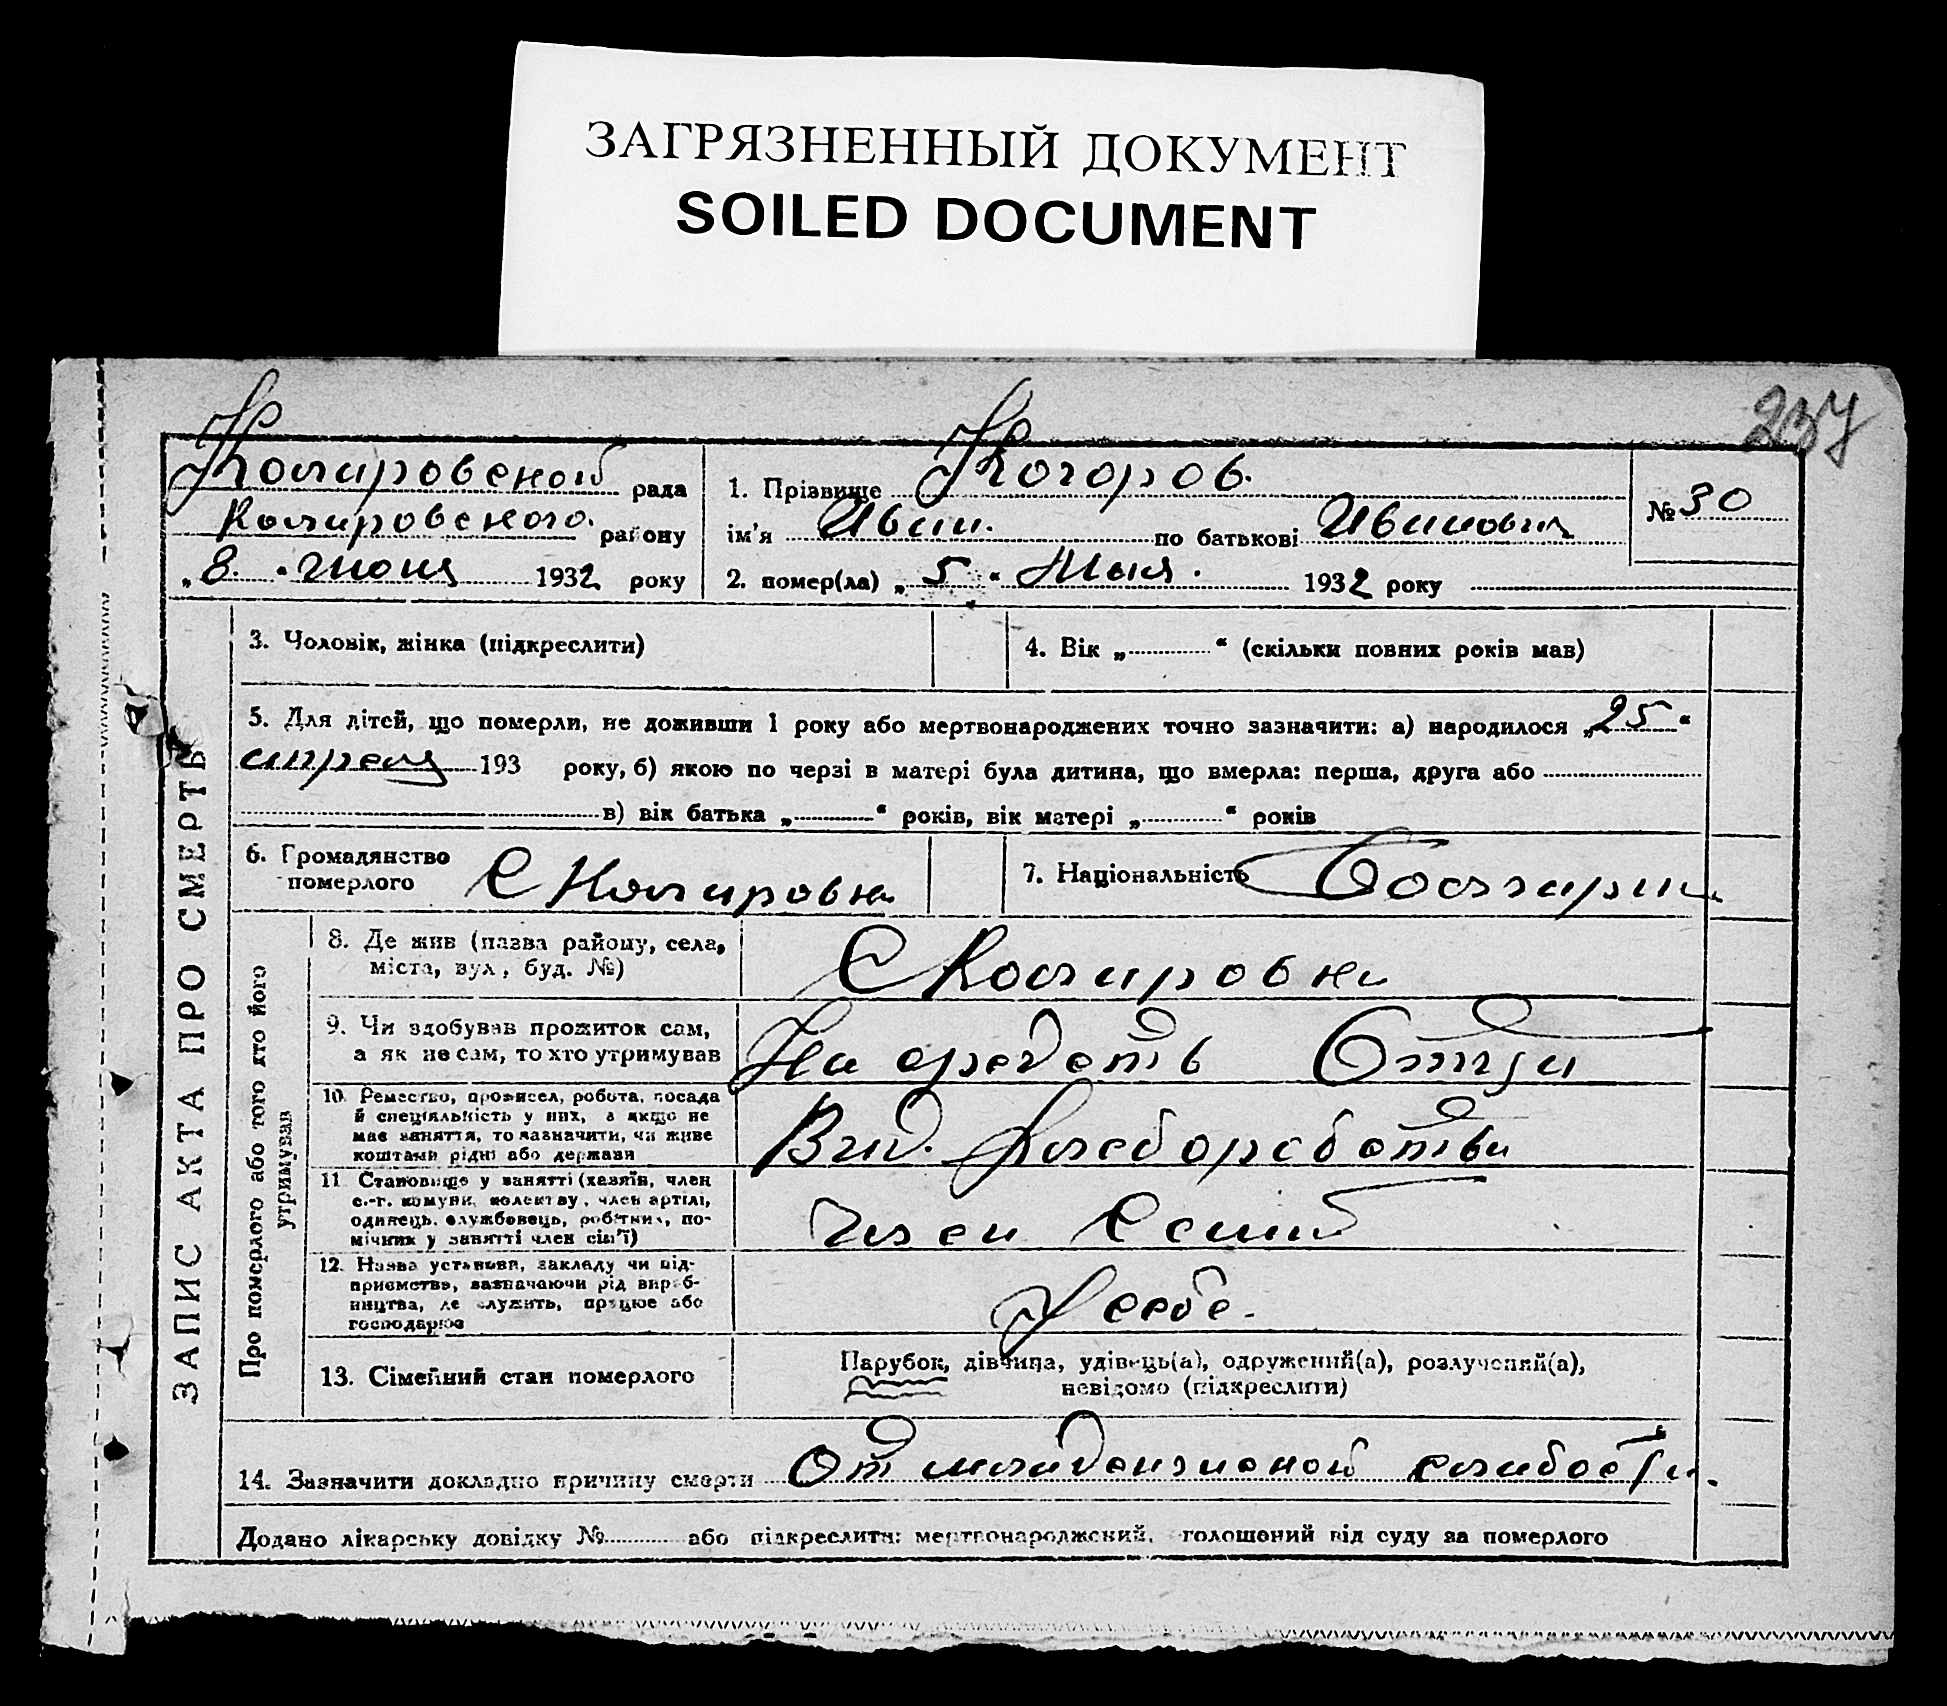 ЗАГРЯЗНЕННЫЙ ДОКУМЕНТ
SOILED DOCUMENT
237
Коларовской рада
Коларовского району
„8. “ июня 1932 року
1. Прізвище Когоров.
ім'я Иван. по батькові Иванович
2. помер(ла) „5“ Мая. 1932 року
№ 30
ЗАПИС АКТА ПРО СМЕРТЬ
3. Чоловік, жінка (підкреслити)
4. Вік „ “ (скільки повних років мав)
5. Для дітей, що померли, не доживши 1 року або мертвонароджених точно зазначити: а) народилося „25“
апреля 193 року, б) якою по черзі в матері була дитина, що вмерла: перша, друга або
в) вік батька „ “ років, вік матері „ “ років
6. Громадянство
померлого
С Коларовка
7. Національність Болгарин
Про померлого або того хто його
утримував
8. Де жив (назва району, села,
міста, вул, буд. №)
С Коларовка
9. Чи здобував прожиток сам,
а як не сам, то хто утримував
На средств Отца
10. Ремество, промисел, робота, посада
й спеціяльність у них, а якщо не
має заняття, то зазначити, чи живе
коштами рідні або держави
11. Становище у занятті (хазяїн, член
с.-г. комуни, колективу, член артілі,
одинець, службовець, робітник, по-
мічник у занятті член сім'ї)
член Семьи
12. Назва установи, закладу чи під-
приємства, зазначаючи рід вироб-
ництва, де служить, працює або
господарює
У себе.
13. Сімейний стан померлого
Парубок, дівчина, удівець(а), одружений(а), розлучений(а),
невідомо (підкреслити)
14. Зазначити докладно причину смерти От младенческой слабости.
Додано лікарську довідку № або підкреслити: мертвонароджений, оголошений від суду за померлого